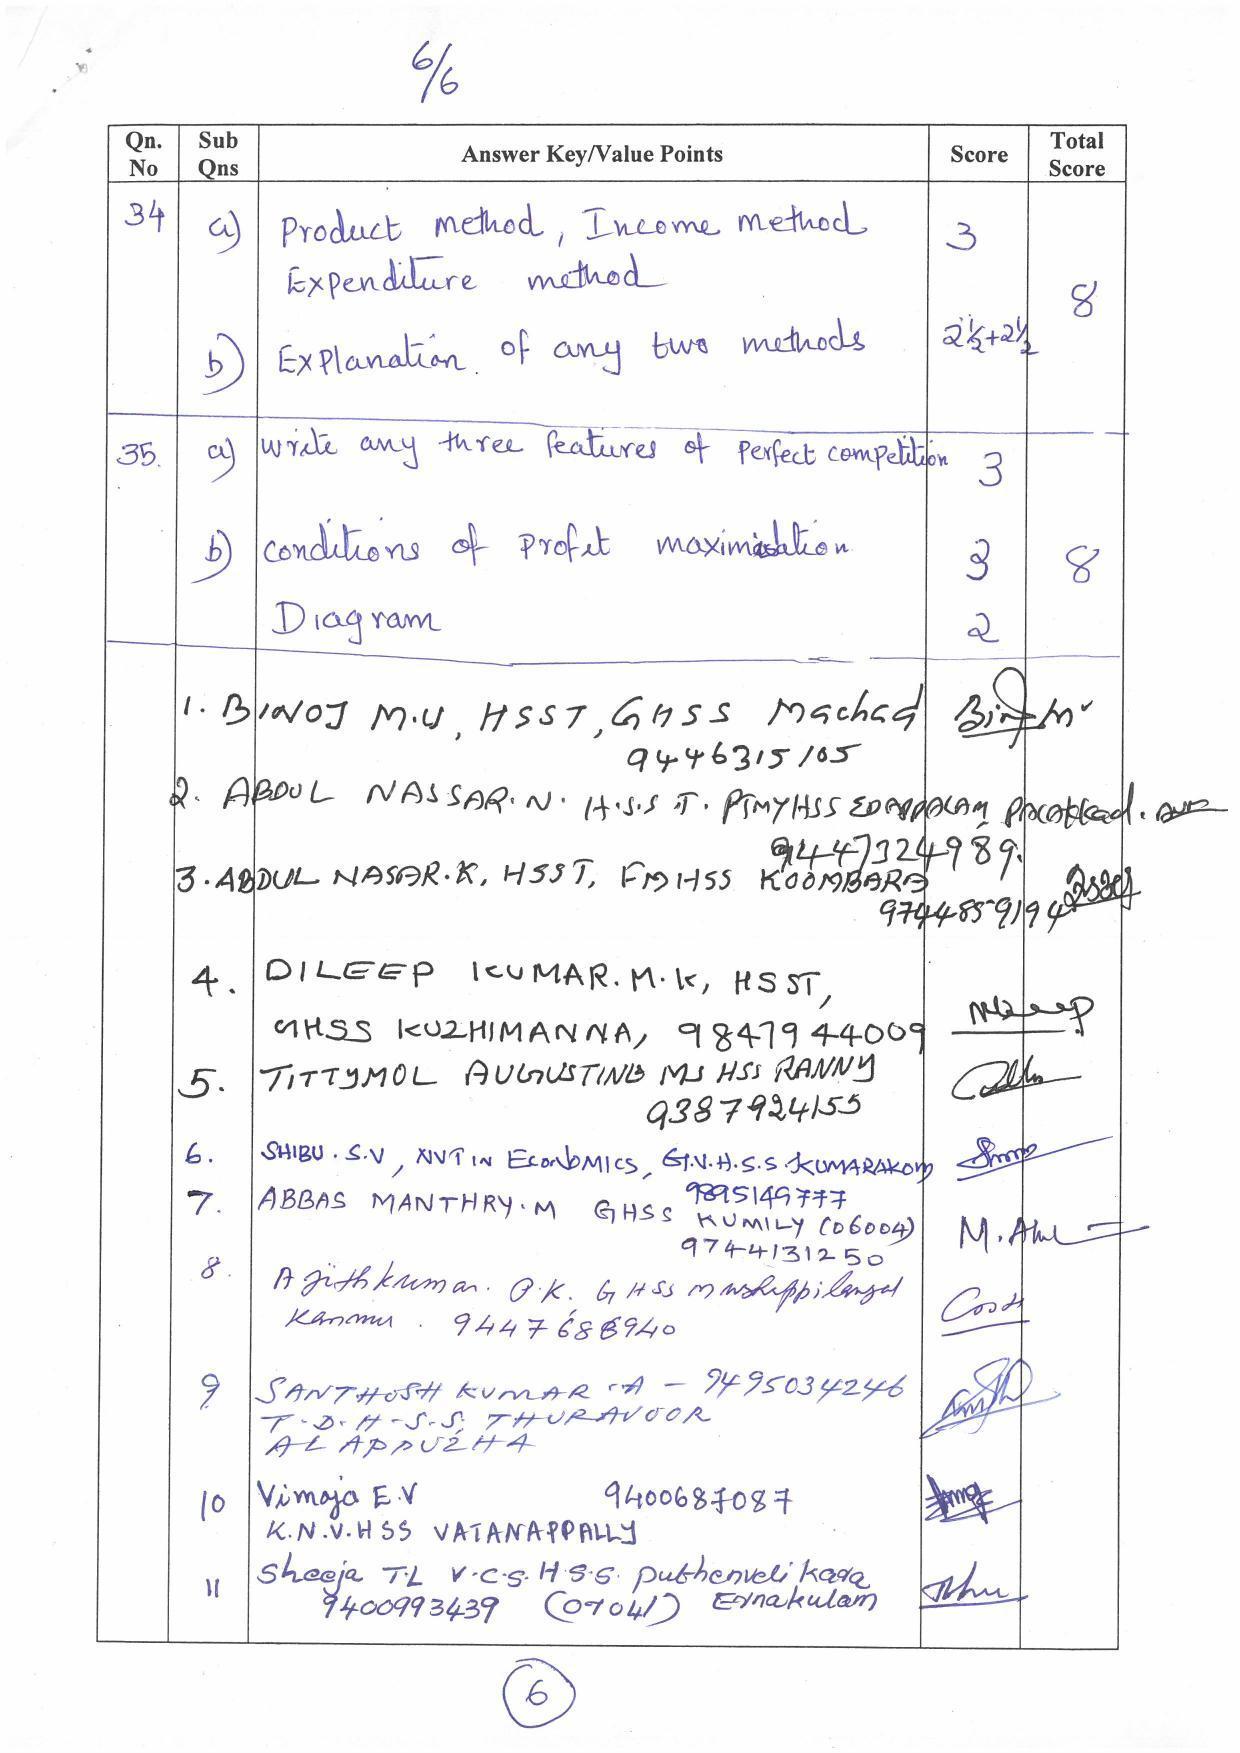 6/6
Qn. No Sub Qns Answer Key/Value Points Score Total Score
34 a) Product method, Income method 3
Expenditure method 8
b) Explanation of any two methods 2½+2½
35. a) write any three features of perfect competition 3
b) conditions of Profit maximisation 3 8
Diagram 2
1. BINOJ M.U, HSST, GHSS Machad
9446315105
2. ABDUL NASSAR. N. H.S.S.T. PTMYHSS EDAPPALAM Palakkad.
9447324989.
3. ABDUL NASAR. K, HSST, FMHSS KOOMBARA
9744859194
4. DILEEP KUMAR. M.K, HSST,
GHSS KUZHIMANNA, 9847944009
5. TITTYMOL AUGUSTINE MS HSS RANNY
9387924155
6. SHIBU. S.V, NVT IN ECONOMICS, G.V.H.S.S. KUMARAKOM
9895149777
7. ABBAS MANTHRY. M GHSS KUMILY (06004)
9744131250
8. Ajithkumar. P.K. GHSS Muzhappilangad
Kannur. 9447686940
9 SANTHOSH KUMAR. A - 9495034246
T.D.H.S.S, THURAVOOR
ALAPPUZHA
10 Vimaja E.V 9400687087
K.N.V.HSS VATANAPPALLY
11 Sheeja T.L V.C.S.H.S.S. puthenvelikara
9400993439 (07041) Ernakulam
6